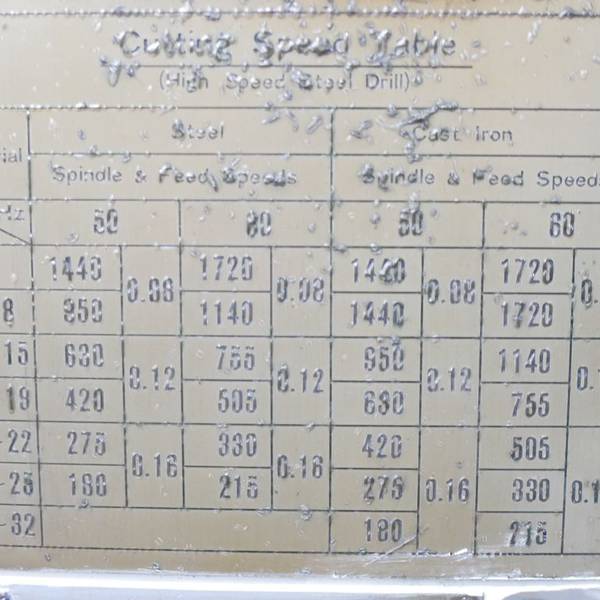 Cutting Speed Table
(High Speed Steel Drill)
ial Steel Cast Iron
Spindle & Feed Speeds Spindle & Feed Speeds
Hz 50 60 50 60
1440 0.08 1720 0.08 1440 0.08 1720 0.
8 950 1140 1440 1720
15 630 0.12 755 0.12 950 0.12 1140 0.1
19 420 505 630 755
-22 275 0.16 330 0.16 420 0.16 505 0.1
-25 180 215 275 330
-32 180 215